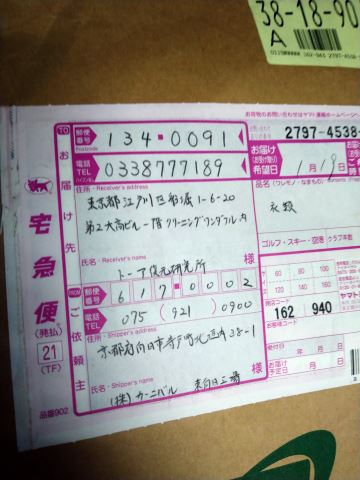 38-18-90
A
お荷物のお問い合わせはヤマト運輸ホームページ
2797-4538-
TO
お届け先
郵便番号
Postcode
134-0091
電話
TEL
0338777189
住所・Receiver's address
東京都江戸川区船堀1-6-20
第2大高ビル一階クリーニングワンダフル内
氏名・Receiver's name
様
トーア復元研究所
お届け
希望日
1月19日
品名
衣類
ゴルフ・スキー・空港
クラブ本数
宅急便
(発払い)
21
(TF)
品番902
FROM
ご依頼主
郵便番号
617-0002
電話
TEL
075(921)0900
住所・Shipper's address
京都府向日市寺戸町北
38-1
氏名・Shipper's name
様
(株)カーニバル
60
80
100
120
140
160
コード
162
940
受付日
年月日
お届け
予定日
月日